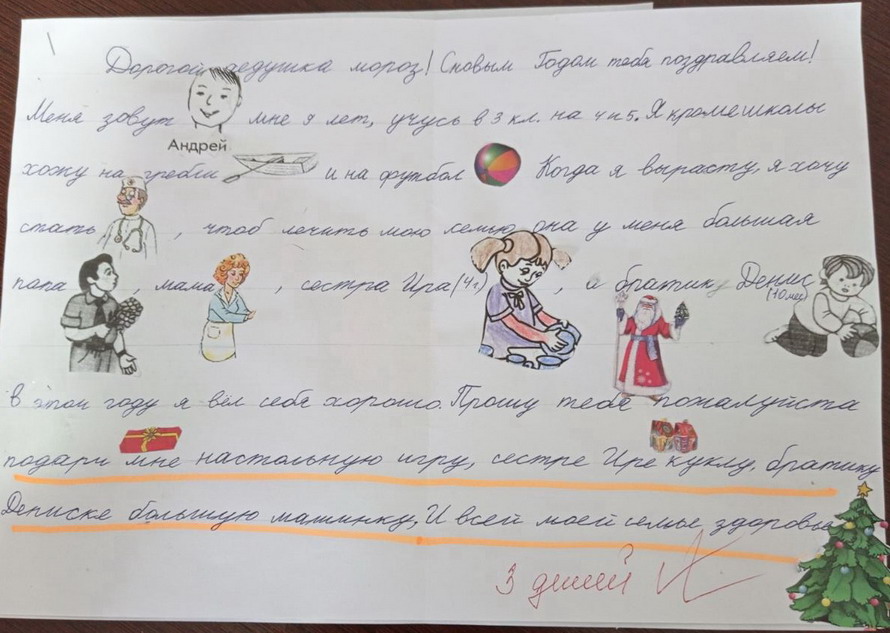 Дорогой дедушка мороз! Сновым Годом тебя поздравляем!
Меня зовут мне 9 лет, учусь в 3 кл. на 4 и 5. Я кроме школы
Андрей
хожу на гребли и на футбол Когда я вырасту, я хочу
стать , чтоб лечить мою семью она у меня большая
папа , мама , сестра Ира (4 г) , и братику Денис
(10 мес)
в этом году я вел себя хорошо. Прошу тебя пожалуйста
подари мне настольную игру, сестре Ире куклу, братику
Дениске большую машинку, И всей моей семье здоровье
3 детей